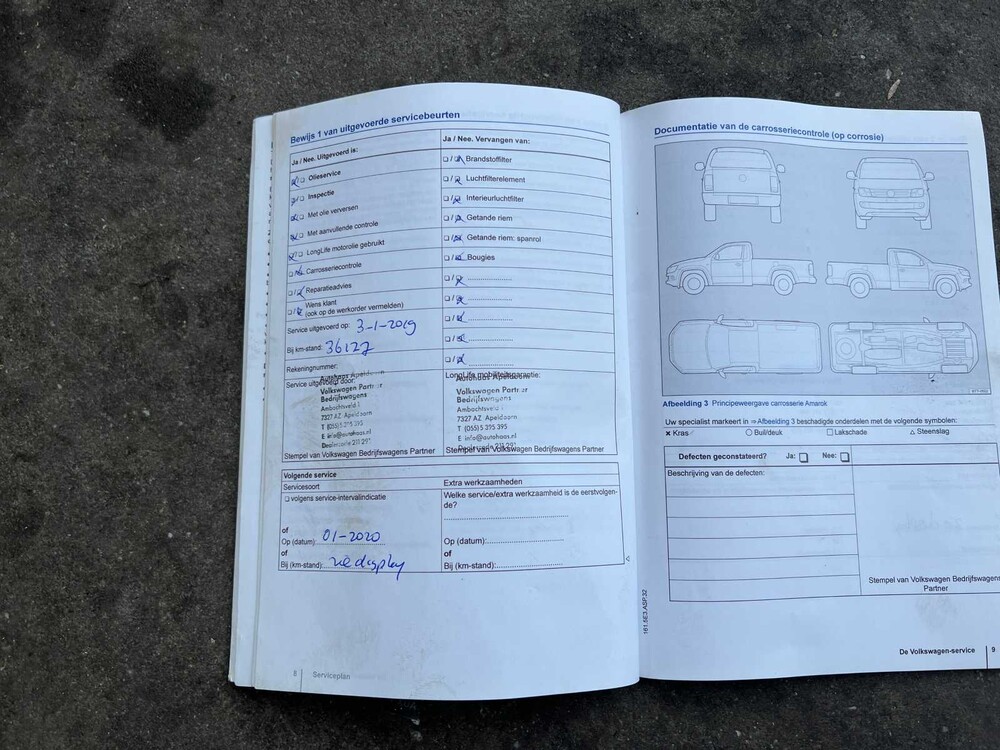 Bewijs 1 van uitgevoerde servicebeurten
Ja / Nee. Uitgevoerd is:
Olieservice
Inspectie
Met olie verversen
Met aanvullende controle
LongLife motorolie gebruikt
Carrosseriecontrole
Reparatieadvies
Wens klant
(ook op de werkorder vermelden)
Service uitgevoerd op: 3-1-2019
Bij km-stand: 36127
Rekeningnummer:
Service uitgevoerd door:
Autohaas Apeldoorn
Volkswagen Partner
Bedrijfswagens
Ambachtsveld 1
7327 AZ Apeldoorn
T (055) 5 395 395
E info@autohaas.nl
Dealercode 211 291
Stempel van Volkswagen Bedrijfswagens Partner
Ja / Nee. Vervangen van:
Brandstoffilter
Luchtfilterelement
Interieurluchtfilter
Getande riem
Getande riem: spanrol
Bougies
LongLife mobiliteitsgarantie:
Autohaas Apeldoorn
Volkswagen Partner
Bedrijfswagens
Ambachtsveld 1
7327 AZ Apeldoorn
T (055) 5 395 395
E info@autohaas.nl
Dealercode 211 291
Stempel van Volkswagen Bedrijfswagens Partner
Volgende service
Servicesoort
volgens service-intervalindicatie
of
Op (datum): 01-2020
of
Bij (km-stand): zie display
Extra werkzaamheden
Welke service/extra werkzaamheid is de eerstvolgen-
de?
Op (datum):
of
Bij (km-stand):
8 Serviceplan
Documentatie van de carrosseriecontrole (op corrosie)
Afbeelding 3 Principeweergave carrosserie Amarok
Uw specialist markeert in ⇒ Afbeelding 3 beschadigde onderdelen met de volgende symbolen:
× Kras ○ Buil/deuk □ Lakschade △ Steenslag
Defecten geconstateerd? Ja: Nee:
Beschrijving van de defecten:
Stempel van Volkswagen Bedrijfswagens
Partner
161.5E3.ASP.32
De Volkswagen-service 9